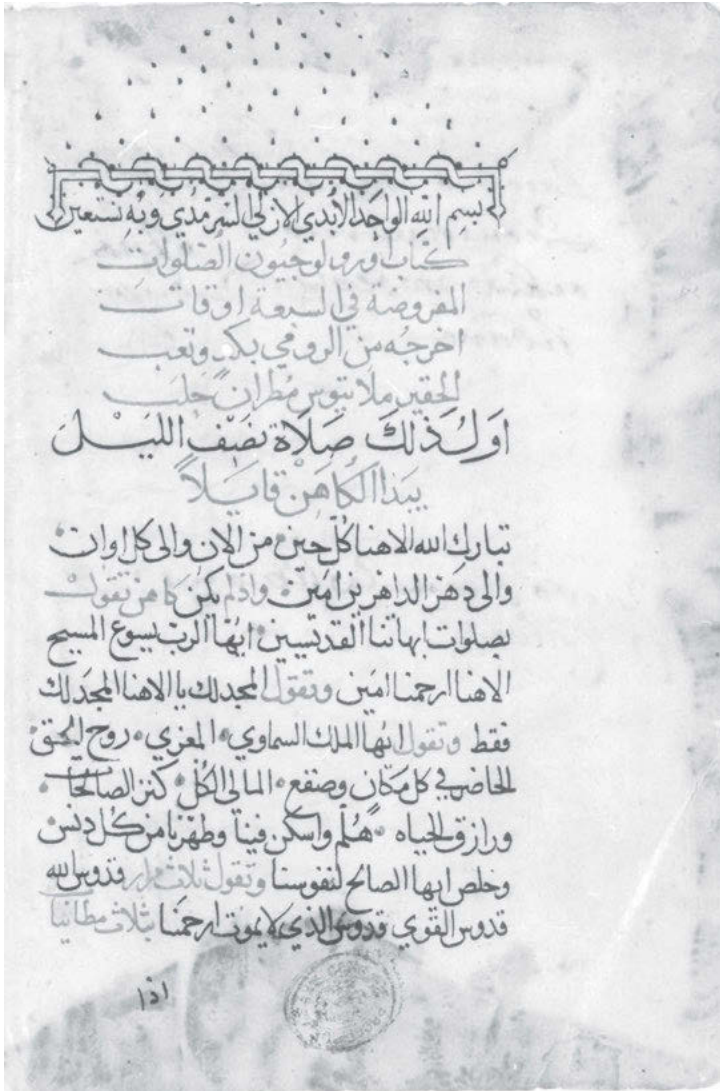 بسم الله الواحد الأبدي الازلي السرمدي وبه نستعين
كتاب اورولوجيون الصلوات
المفروضة في السبعة اوقات
اخرجه من الرومي بكد وتعب
الحقير ملاتيوس مطران حلب
اول ذلك صلاة نصف الليل
يبدا الكاهن قايلاً
تبارك الله الاهنا كل حين من الان والى كل اوان
والى دهر الداهرين امين واذ لم يكن كاهن تقول
بصلوات ابهاتنا القديسين ايها الرب يسوع المسيح
الاهنا ارحمنا امين وتقول المجد لك يا الاهنا المجد لك
فقط وتقول ايها الملك السماوي المعزي روح الحق
الحاضر في كل مكان وصقع المالى الكل كنز الصالحات
ورازق الحياه هلم واسكن فينا وطهرنا من كل دنس
وخلص ايها الصالح لنفوسنا وتقول ثلاث مرار قدوس الله
قدوس القوي قدوس الذي لا يموت ارحمنا بثلاث مطانيا